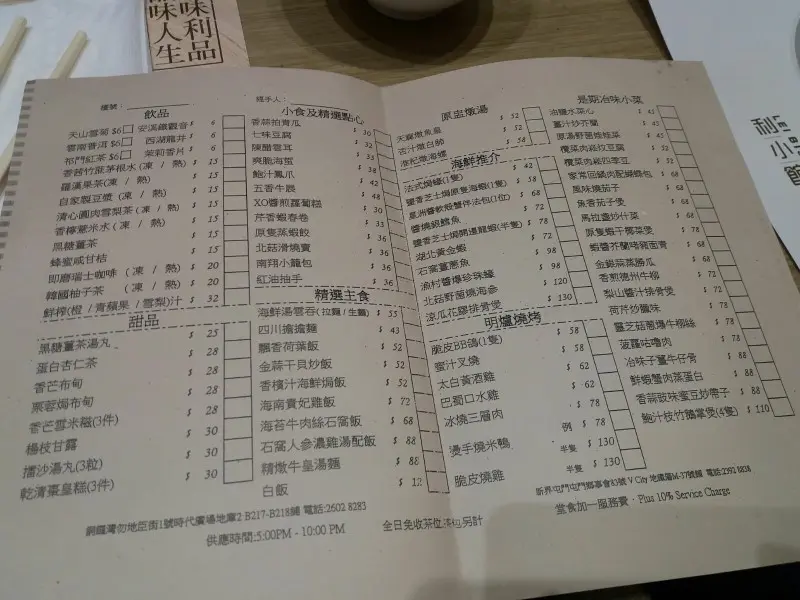 味利品
味人生
檯號：
飲品
天山雪菊 $6 安溪鐵觀音 6
雲南普洱 $6 西湖龍井 $ 6
祁門紅茶 $6 茉莉香片 $ 6
香茜竹蔗茅根水(凍 / 熱) $ 15
羅漢果茶(凍 / 熱) $ 15
自家磨豆漿(凍 / 熱) $ 15
清心圓肉雪梨茶(凍 / 熱) $ 15
香檸薏米水(凍 / 熱) $ 15
黑糖薑茶 $ 15
蜂蜜咸甘桔 $ 15
即磨瑞士咖啡 (凍 / 熱) $ 20
韓國柚子茶 (凍 / 熱) $ 20
鮮榨(橙 / 青蘋果 / 雪梨)汁 $ 32
甜品
黑糖薑茶湯丸 $ 25
蛋白杏仁茶 $ 28
香芒布甸 $ 28
栗蓉焗布甸 $ 28
香芒雪米糍(3件) $ 30
楊枝甘露 $ 30
擂沙湯丸(3粒) $ 30
乾清棗皇糕(3件) $ 30
經手人：
小食及精選點心
香蒜拍青瓜 $ 30
七味豆腐 $ 32
陳醋雲耳 $ 33
爽脆海蜇 $ 38
鮑汁鳳爪 $ 42
五香牛𦟌 $ 48
XO醬煎蘿蔔糕 $ 30
芹香蝦春卷 $ 33
原隻蒸蝦餃 $ 36
北菇滑燒賣 $ 36
南翔小籠包 $ 36
紅油抽手 $ 36
精選主食
海鮮湯雲吞(拉麵 / 生麵) $ 55
四川擔擔麵 $ 43
飄香荷葉飯 $ 52
金蒜干貝炒飯 $ 52
香檳汁海鮮焗飯 $ 52
海南貴妃雞飯 $ 72
海苔牛肉絲石窩飯 $ 68
石窩人參濃雞湯配飯 $ 88
精燉牛皇湯麵 $ 88
白飯 $ 12
原盅燉湯
天麻燉魚扁 $ 52
杏汁燉白肺 $ 52
淮杞燉海螺 $ 58
海鮮推介
法式焗蠔(1隻) $ 42
鹽香芝士焗原隻海蝦(1隻) $ 58
星洲醬軟殼蟹伴法包(1位) $ 68
醬燒銀鱈魚 $ 72
鹽香芝士焗開邊龍蝦(半隻) $ 78
湖北黃金蝦 $ 98
石窩薑蔥魚 $ 72
漁村醬爆珍珠蠔 $ 98
北菇野菌燒海參 $ 120
涼瓜花膠排骨煲 $ 130
明爐燒烤
脆皮BB鴿(1隻) $ 58
蜜汁叉燒 $ 58
太白黃酒雞 $ 62
巴蜀口水雞 $ 62
冰燒三層肉 $ 78
例 $ 78
燙手燒米鴨 半隻 $ 130
脆皮燒雞 半隻 $ 130
是期冶味小菜
油鹽水菜心 $ 45
薑汁炒芥蘭 $ 45
原湯野菌娃娃菜 $ 58
欖菜肉崧四季豆 $ 58
家常回鍋肉配蝴蝶包 $ 68
風味燒茄子 $ 68
魚香茄子煲 $ 68
馬拉盞炒什菜 $ 68
原隻蝦干椰菜煲 $ 68
蝦醬芥蘭啫豬面青 $ 68
金銀蒜蒸勝瓜 $ 68
香煎德州牛柳 $ 72
梨山醬汁排骨煲 $ 72
荷芹炒臘味 $ 78
靈芝菇蔥爆牛柳絲 $ 78
菠蘿咕嚕肉 $ 78
冶味子薑牛仔骨 $ 88
鮮蝦蟹肉蒸蛋白 $ 88
香蒜豉味蜜豆炒帶子 $ 88
鮑汁枝竹鵝掌煲(4隻) $ 110
銅鑼灣勿地臣街1號時代廣場地庫2 B217-B218舖 電話:2602 8283
供應時間:5:00PM - 10:00 PM
全日免收茶位,澳梳另計
新界屯門屯門鄉事會83號 V City 地鐵層M-37號舖 電話:2392 0838
堂食加一服務費．Plus 10% Service Charge
利
小
館